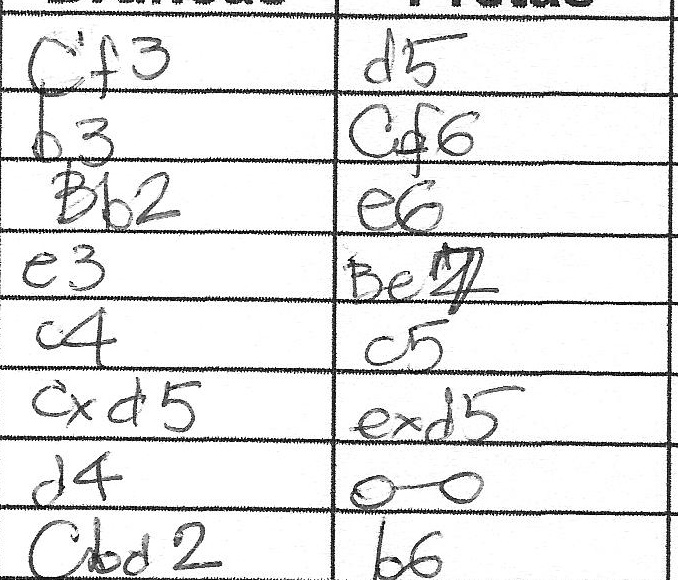 Cf3 d5
b3 Cf6
Bb2 e6
e3 Be7
c4 c5
cxd5 exd5
d4 o-o
Cbd2 b6